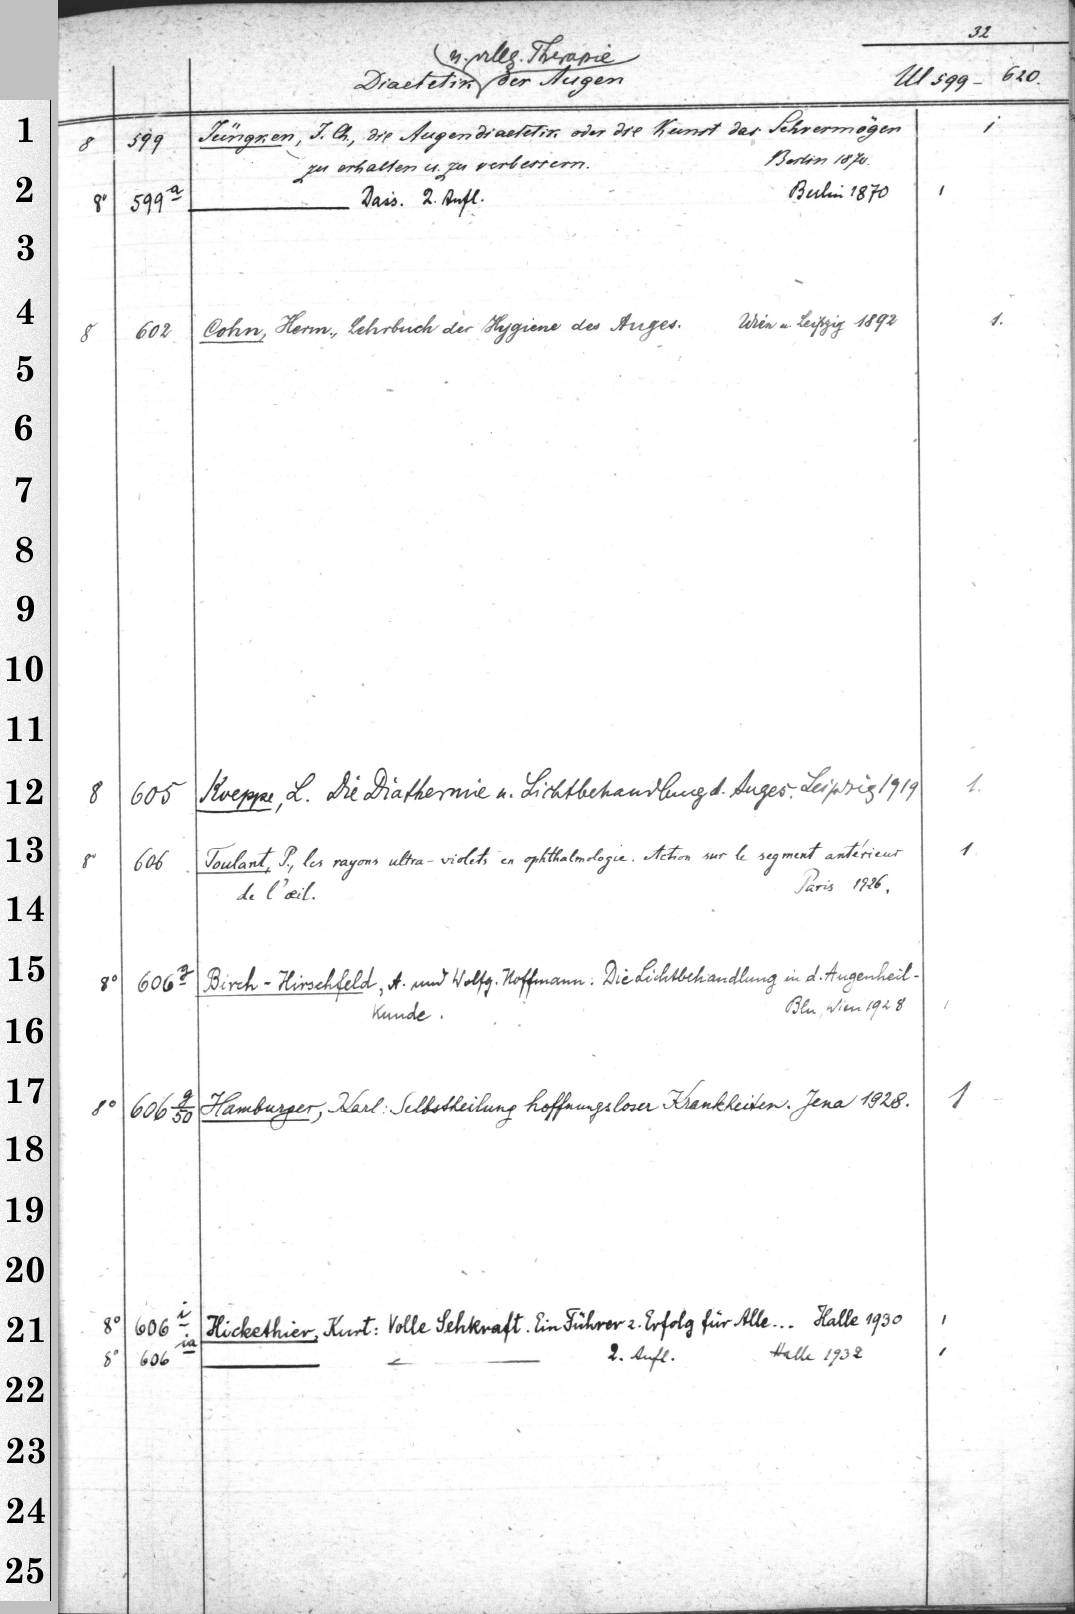 32
u. allg. Therapie
Diaetetik der Augen
Ul 599 - 620.
1
8 599 Jüngken, J. Ch., die Augendiaetetik oder die Kunst das Sehvermögen 1
zu erhalten u. zu verbessern. Berlin 1870.
2
8° 599a Dass. 2. Aufl. Berlin 1870 1
3
4
8 602 Cohn, Herm., Lehrbuch der Hygiene des Auges. Wien u. Leipzig 1892 1.
5
6
7
8
9
10
11
12
8 605 Koeppe, L. Die Diathermie u. Lichtbehandlung d. Auges. Leipzig 1919 1.
13
8° 606 Toulant, P., les rayons ultra-violets en ophthalmologie. Action sur le segment antérieur 1
de l'œil. Paris 1926.
14
15
8° 606g Birch-Hirschfeld, A. und Wolfg. Hoffmann: Die Lichtbehandlung in d. Augenheil-
kunde. Bln, Wien 1928 1
16
17
8° 606 g/50 Hamburger, Karl: Selbstheilung hoffnungsloser Krankheiten. Jena 1928. 1
18
19
20
21
8° 606 i Hickethier, Kurt: Volle Sehkraft. Ein Führer z. Erfolg für Alle... Halle 1930 1
8° 606 ia 2. Aufl. Halle 1932 1
22
23
24
25